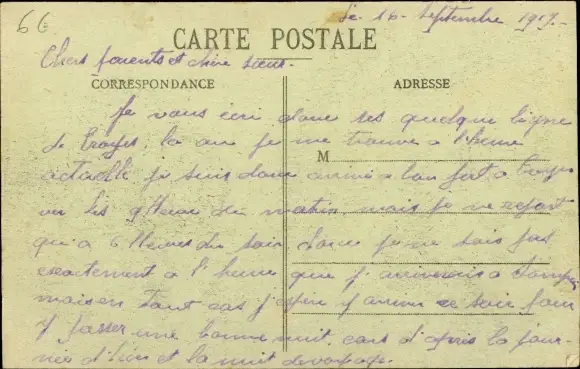 66
Le 16 Septembre 1917.
CARTE POSTALE
Chers parents et chère soeur.
CORRESPONDANCE
ADRESSE
Je vous écri donc ses quelque ligne
de Troyes, la au je me trouve a l'heure
M
actuelle je suis donc arrivé a bon port a Troyes
ver les 9 Heures du matin, mais je ne repart
qu'a 6 Heures du soir, donc je ne sais pas
exactement a l'heure que j'arriverais a
maison tout cas j'espère y arriver ce soir pour
y passer une bonne nuit, cars d'après la jour-
née d'hier et la nuit de voyage.